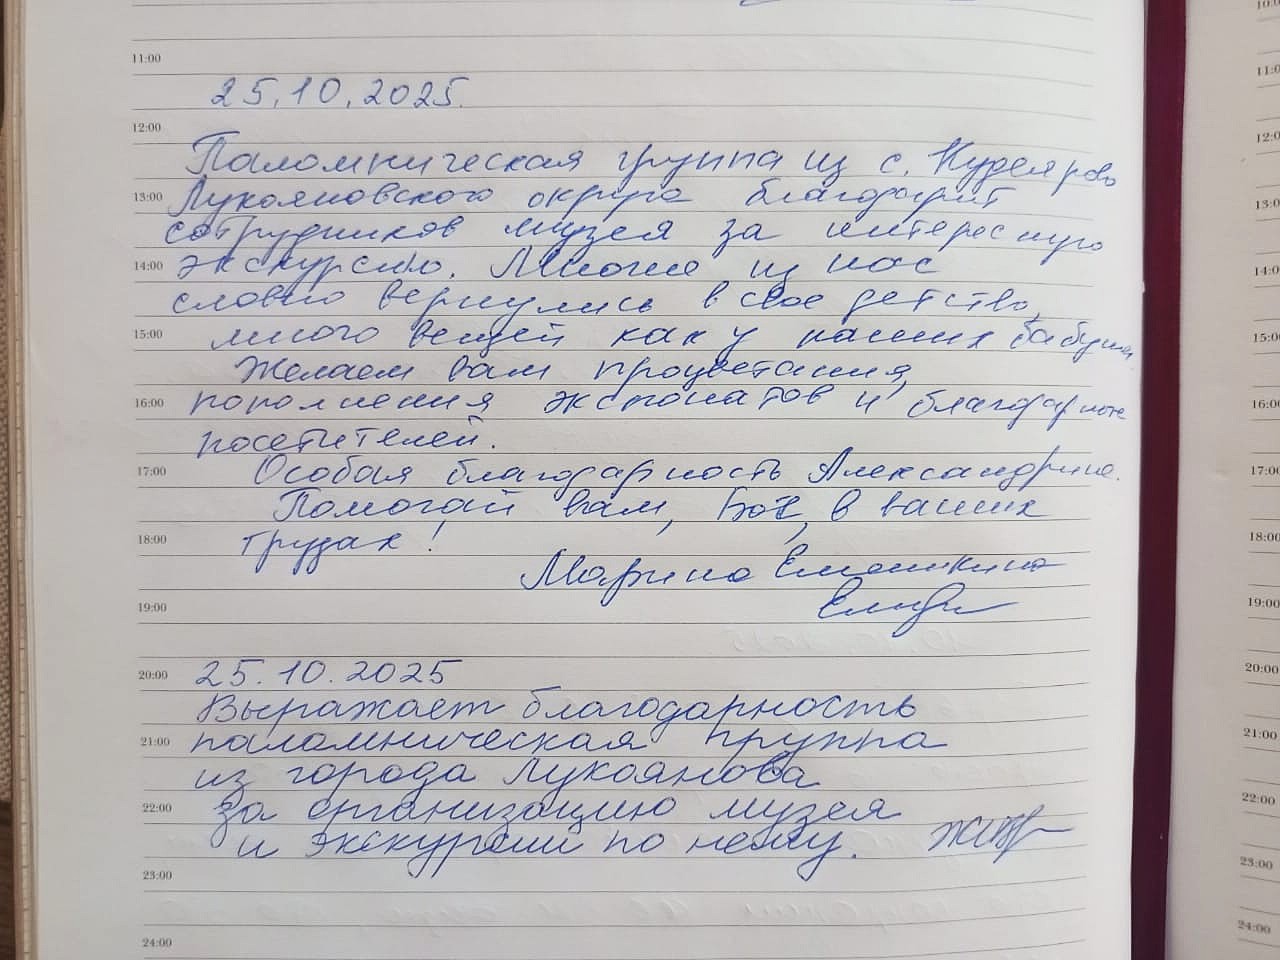 11:00
25.10.2025.
12:00
Паломническая группа из с. Кудеярово
13:00 Лукояновского округа благодарит
сотрудников музея за интересную
14:00 экскурсию. Многие из нас
словно вернулись в свое детство,
15:00 много вещей как у наших бабушек
Желаем вам процветания,
16:00 пополнения экспонатов и благодарных
посетителей.
17:00 Особая благодарность Александрине.
Помогай вам, Бог, в ваших
18:00 трудах!
Марина
19:00
20:00 25.10.2025
Выражает благодарность
21:00 паломническая группа
из города Лукоянова
22:00 за организацию музея
и экскурсии по нему.
23:00
24:00
10:0
11:0
12:0
13:0
14:0
15:0
16:0
17:0
18:00
19:00
20:00
21:00
22:00
23:00
24:00